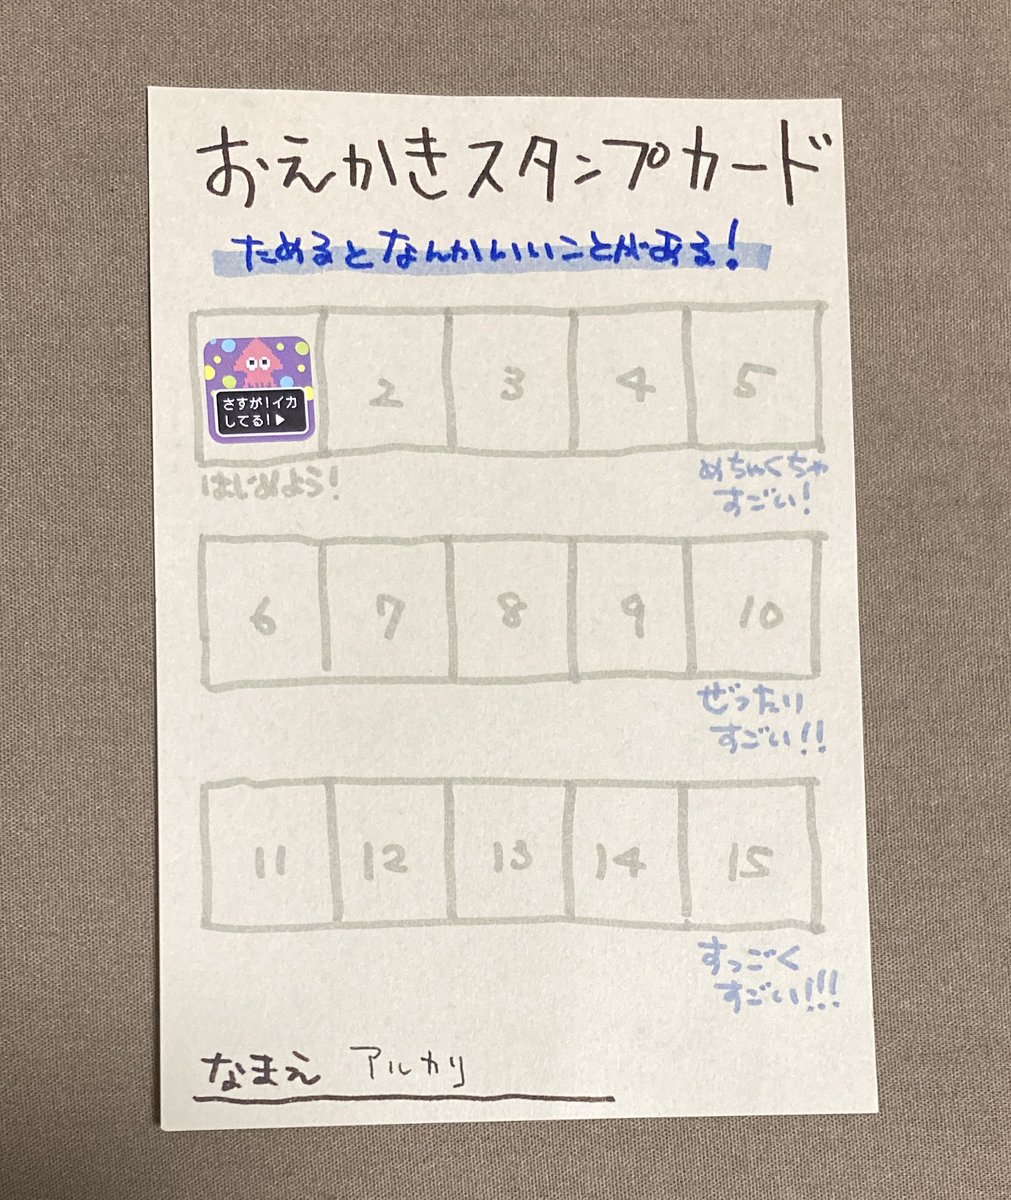 おえかきスタンプカード
ためるとなんかいいことがある!
さすが!イカ
してる!▶
2 3 4 5
はじめよう!
めちゃくちゃ
すごい!
6 7 8 9 10
ぜったり
すごい!!
11 12 13 14 15
すっごく
すごい!!!
なまえ アルカリ